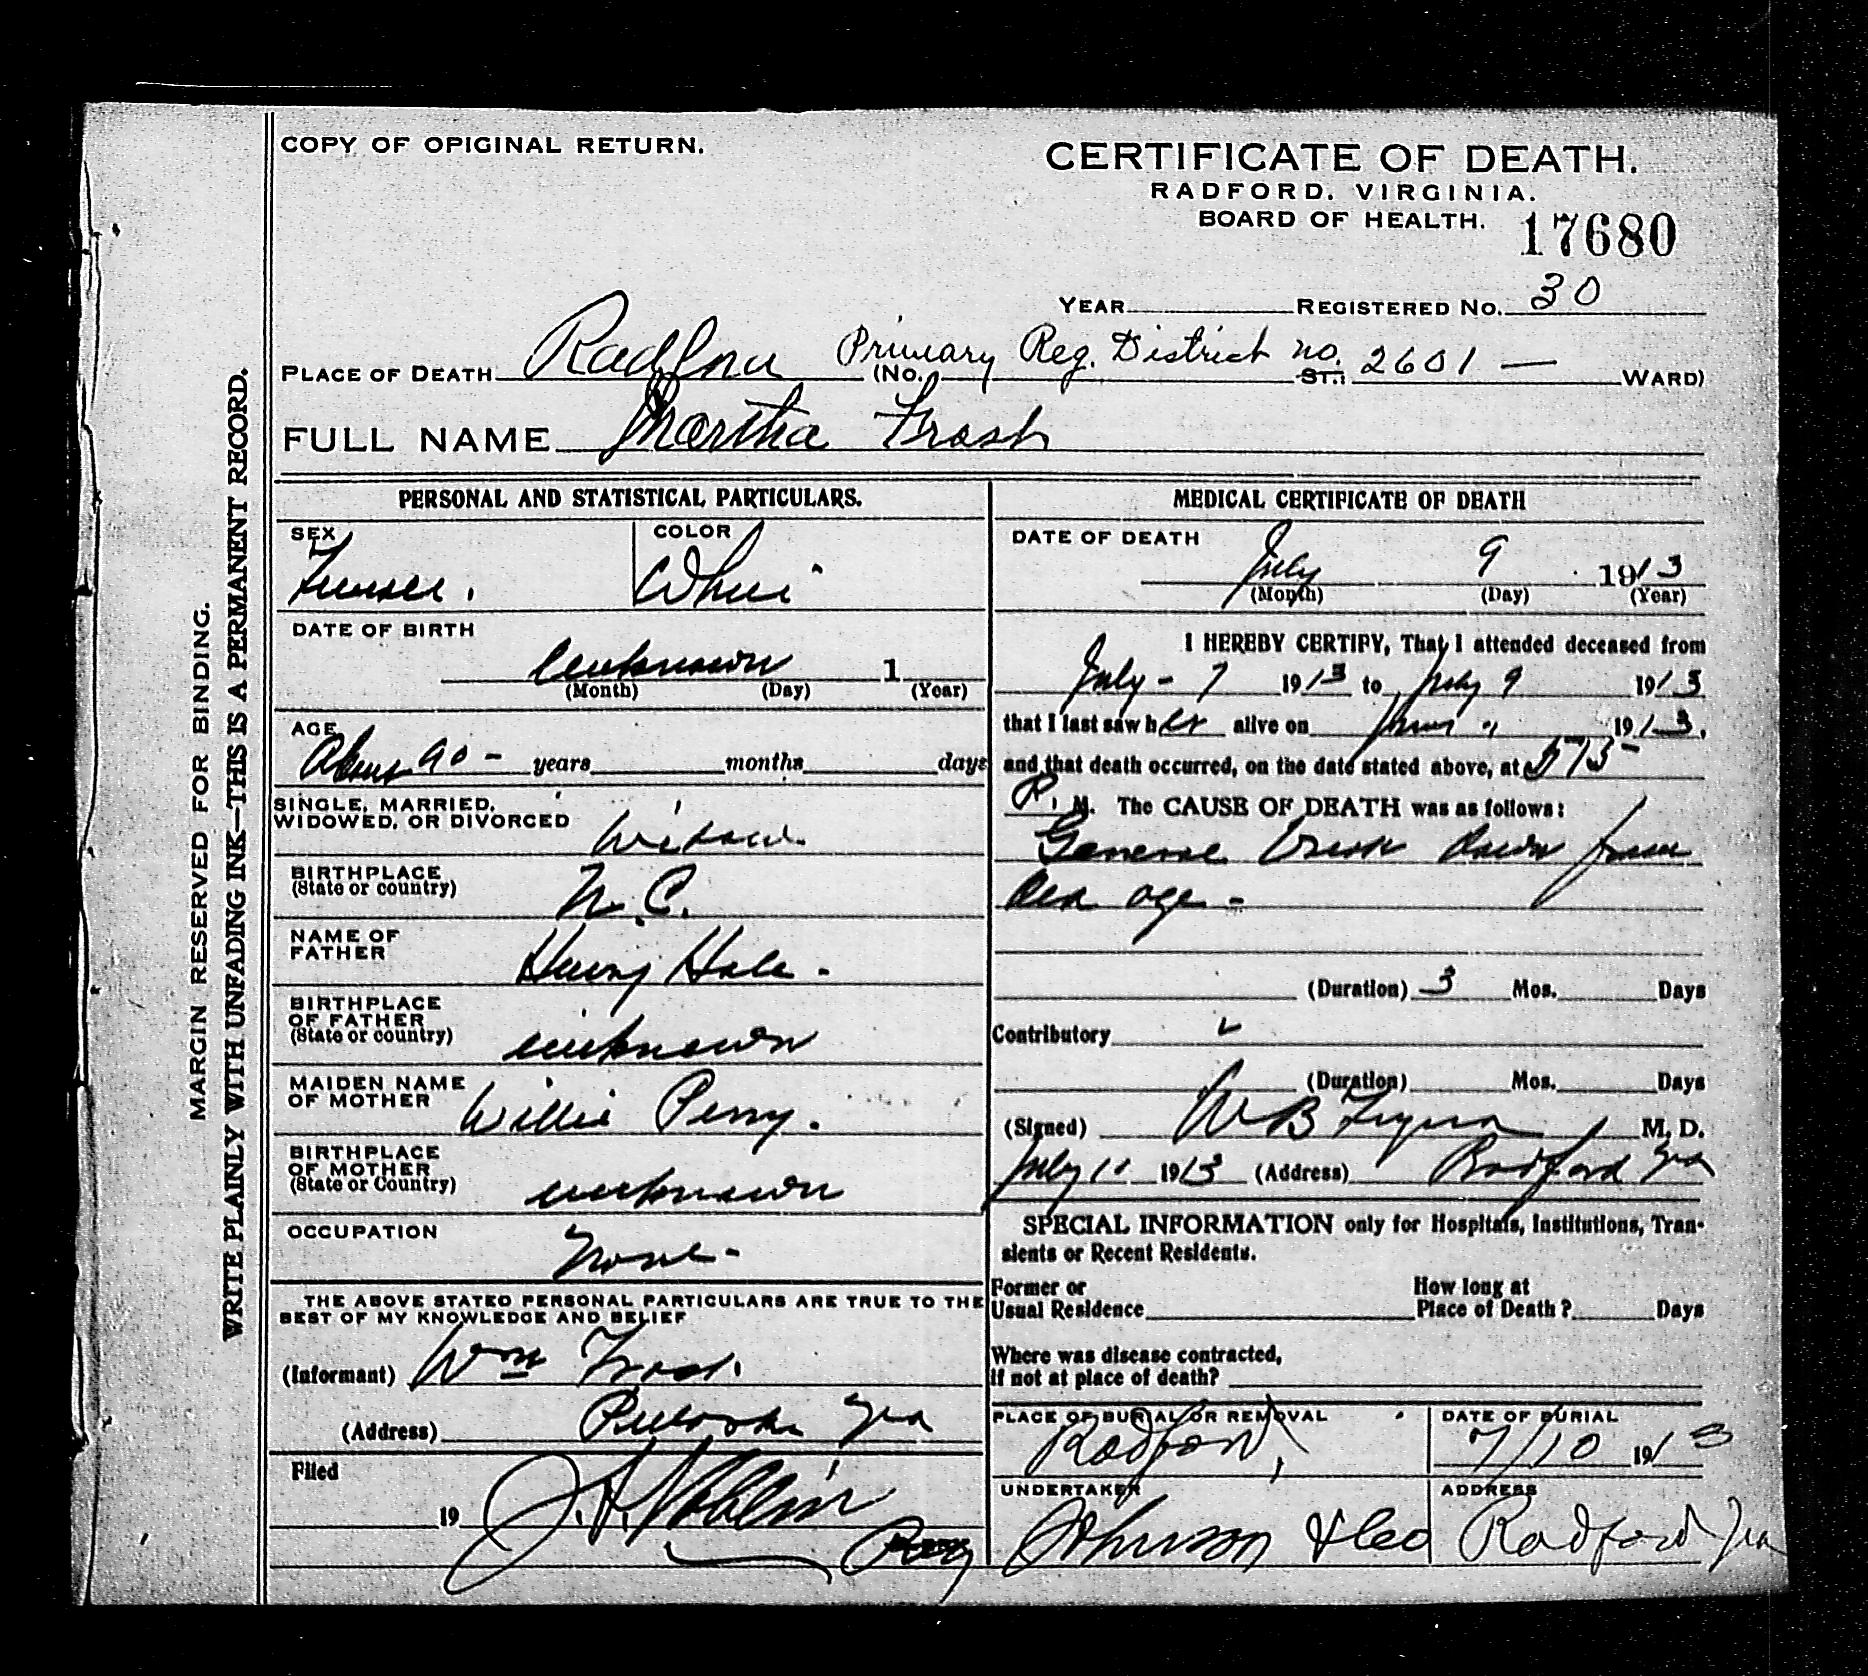 COPY OF OPIGINAL RETURN.
CERTIFICATE OF DEATH.
RADFORD, VIRGINIA.
BOARD OF HEALTH. 17680
YEAR REGISTERED No. 30
PLACE OF DEATH Radford Primary Reg. District no. 2601 — (No. ST.; WARD)
FULL NAME Martha Frost
MARGIN RESERVED FOR BINDING.
WRITE PLAINLY WITH UNFADING INK—THIS IS A PERMANENT RECORD.
PERSONAL AND STATISTICAL PARTICULARS.
SEX Female. COLOR White
DATE OF BIRTH
unknown 1
(Month) (Day) (Year)
AGE
About 90 - years months days
SINGLE, MARRIED,
WIDOWED, OR DIVORCED Widow.
BIRTHPLACE
(State or country) N.C.
NAME OF
FATHER Henry Hale.
BIRTHPLACE
OF FATHER
(State or country) unknown
MAIDEN NAME
OF MOTHER Willie Perry.
BIRTHPLACE
OF MOTHER
(State or Country) unknown
OCCUPATION
None -
THE ABOVE STATED PERSONAL PARTICULARS ARE TRUE TO THE
BEST OF MY KNOWLEDGE AND BELIEF
(Informant) Wm Frost.
(Address) Pulaski Va
Filed
19 J. A.
MEDICAL CERTIFICATE OF DEATH
DATE OF DEATH July 9 1913
(Month) (Day) (Year)
I HEREBY CERTIFY, That I attended deceased from
July - 7 1913 to July 9 1913
that I last saw her alive on 1913,
and that death occurred, on the date stated above, at 515
P. M. The CAUSE OF DEATH was as follows:
General break down from
old age -
(Duration) 3 Mos. Days
Contributory
(Duration) Mos. Days
(Signed) W B M. D.
July 1913 (Address) Radford Va
SPECIAL INFORMATION only for Hospitals, Institutions, Tran-
sients or Recent Residents.
Former or How long at
Usual Residence Place of Death? Days
Where was disease contracted,
If not at place of death?
PLACE OF BURIAL OR REMOVAL DATE OF BURIAL
Radford, 7/10 1913
UNDERTAKER ADDRESS
Johnson & Co Radford Va